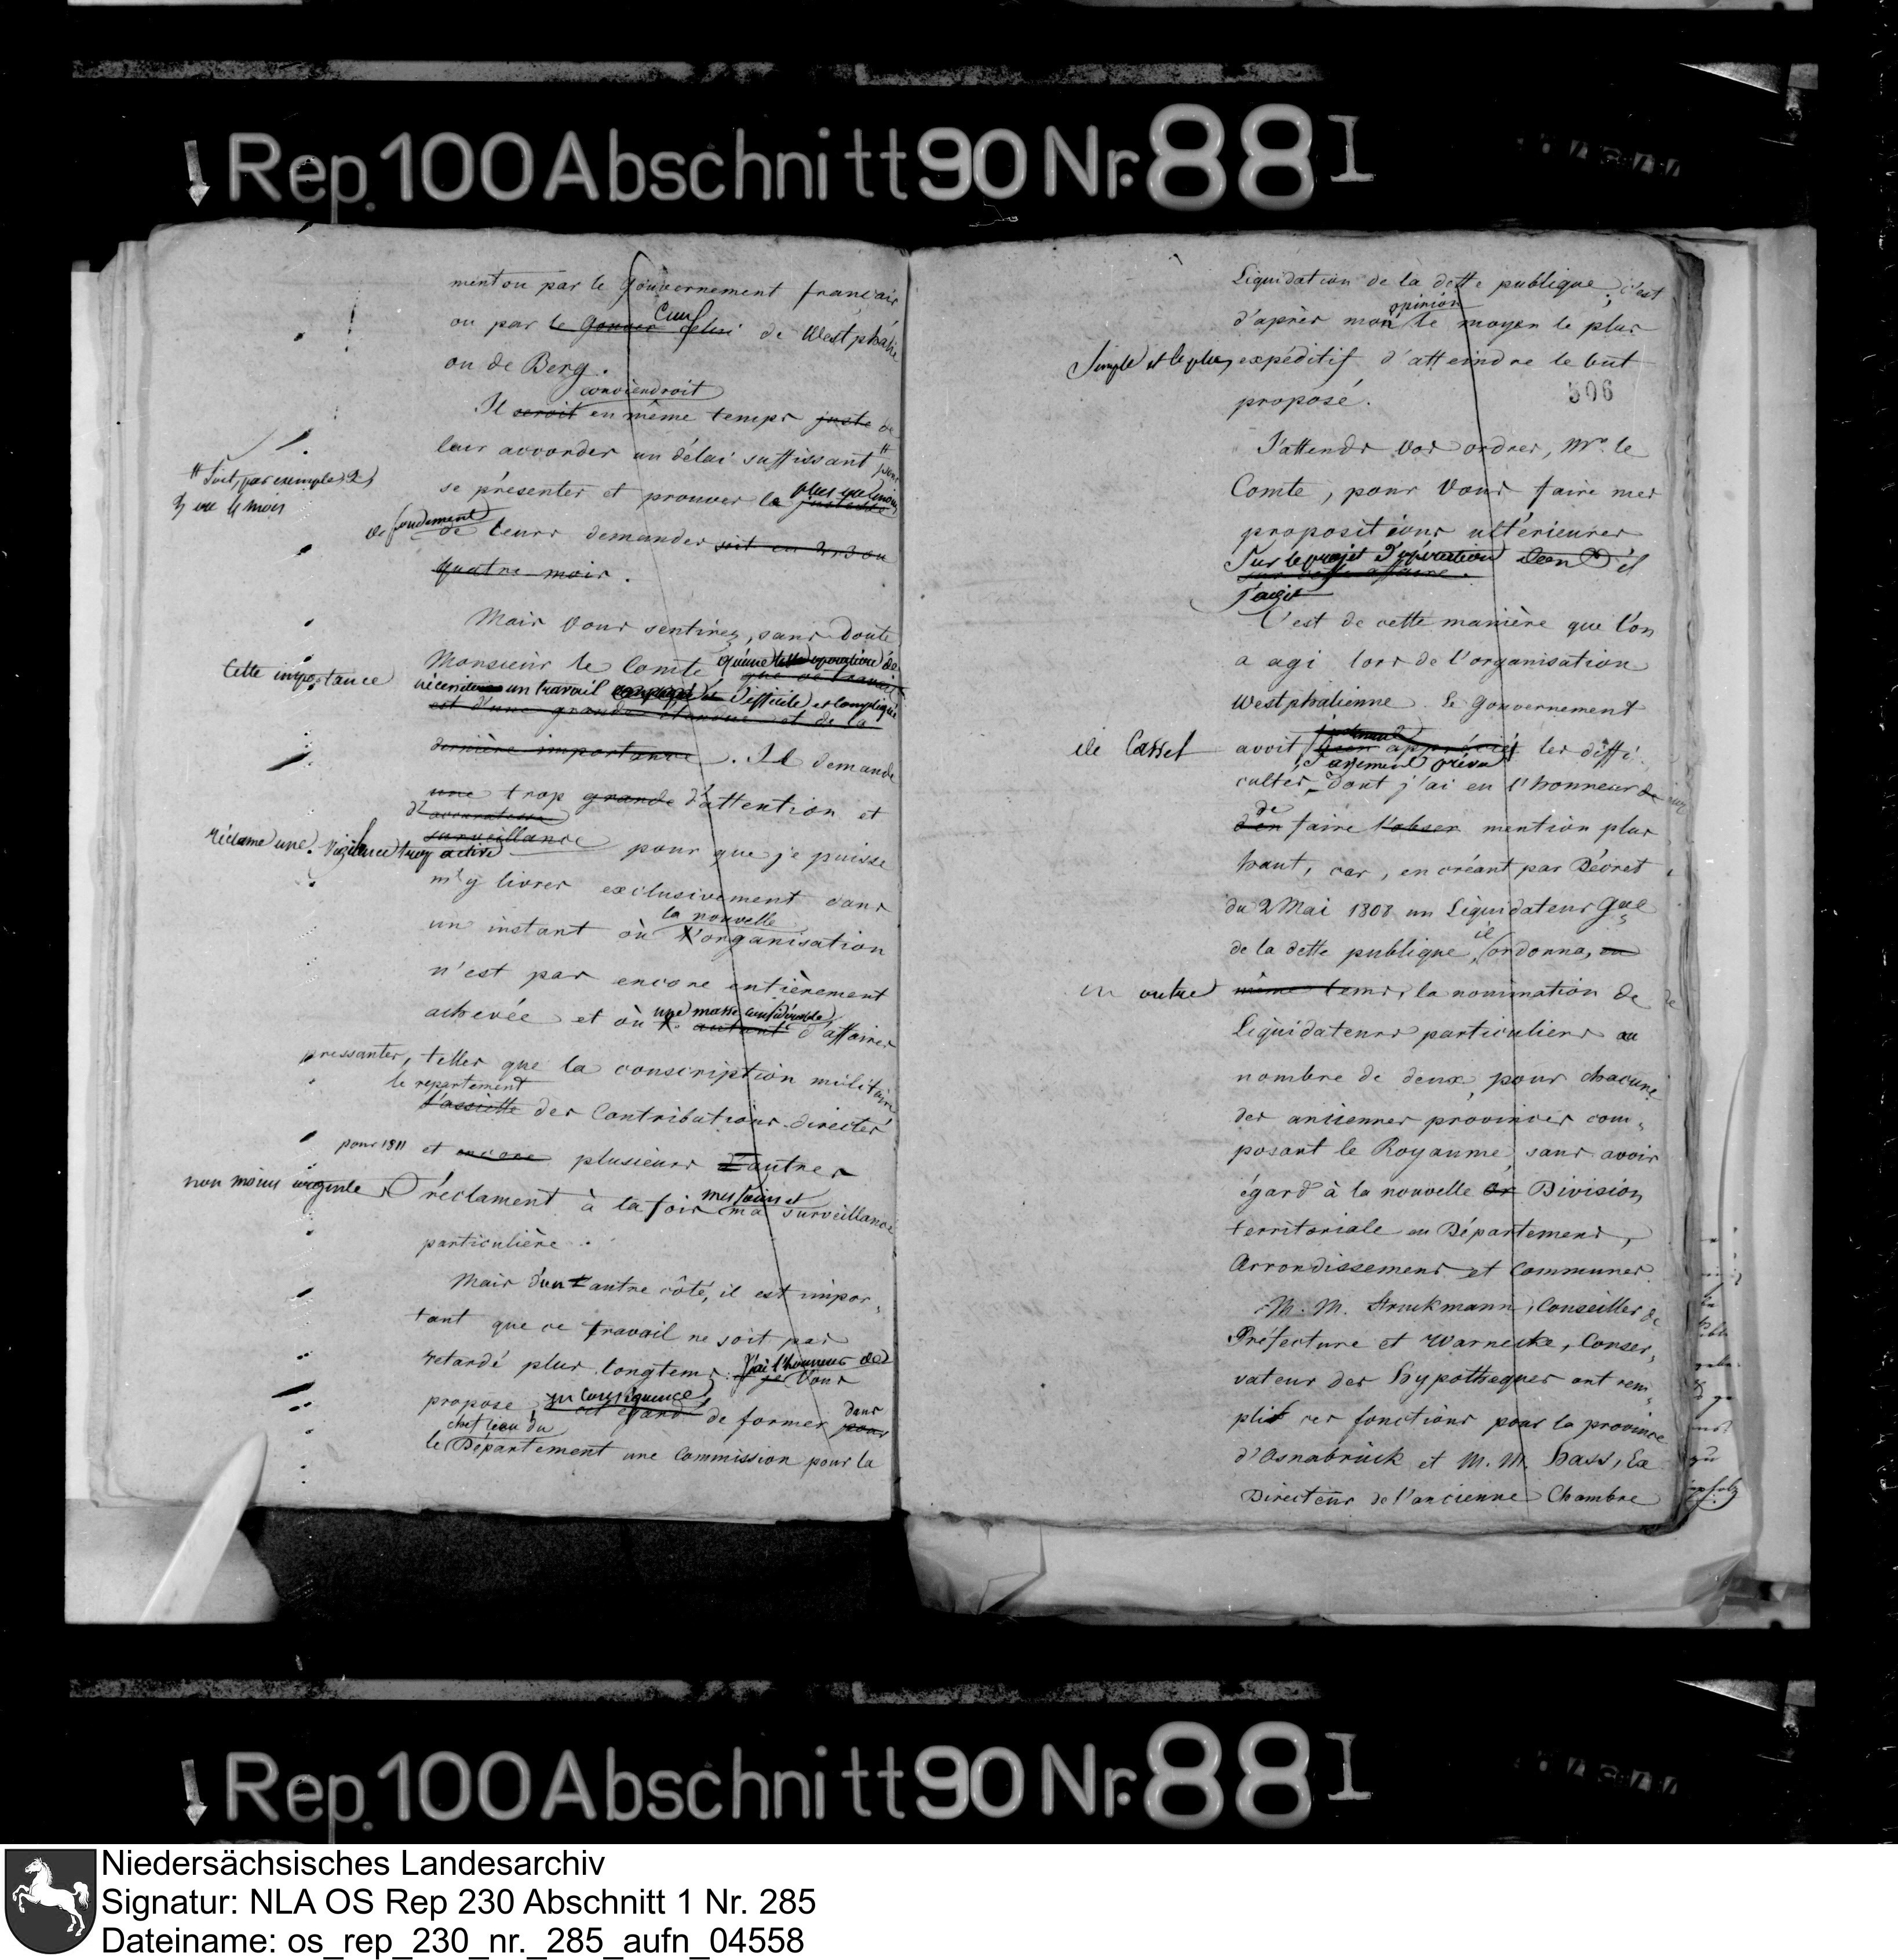 Rep. 100 Abschnitt 90 Nr. 88 I
ment ou par le Gouvernement français
ou par le Gouver celui de Westphalie
ou de Berg.
conviendroit
Il seroit en même temps juste de
leur accorder un délai suffissant # pour
# Soit, par exemple, 2,
3, ou 4 mois
se présenter et prouver la plus ou moins justesse
de fondement de leurs demandes soit en 2, 3 ou
quatre mois.
Mais vous sentirez, sans doute
Monsieur le Comte qu'une telle opération de que ce travail
Cette importance
nécessite un travail difficile et compliqué
est d'une grande étendue et de la
dernière importance. Il demande
une trop grande d'attention et
surveillance pour que je puisse
réclame une vigilance trop active
m'y livrer exclusivement dans
la nouvelle
un instant où l'organisation
n'est pas encore entièrement
achevée et où une masse considérable autant d'affaires
pressantes, telles que la conscription militaire
le repartement
l'assiette des Contributions directes
pour 1811 et encore plusieurs d'autres
non moins urgente réclament à la fois mes soins et ma surveillance
particulière.
Mais d'un autre côté, il est impor-
tant que ce travail ne soit pas
retardé plus longtems. J'ai l'honneur de je vous
propose, en conséquence, cet égard de former dans pour
chef lieu du
le Département une Commission pour la
Liquidation de la dette publique; c'est
opinion
d'après mon le moyen le plus
simple et le plus expéditif d'atteindre le but
proposé.
506
J'attends vos ordres, Mr. le
Comte, pour vous faire mes
propositions ultérieures
sur le projet d'opération dont il
sur cette affaire.
s'agit
C'est de cette manière que l'on
a agi lors de l'organisation
Westphalienne. Le Gouvernement
de Cassel avoit bien apprécié les diffi-
sagement prévu
cultés, dont j'ai eu l'honneur de
de
d'en faire l'obser mention plus
haut, car, en créant par Décret
du 2 Mai 1808 un Liquidateur Gnl
de la dette publique, il ordonna, en
en outre même tems, la nomination de
Liquidateurs particuliers au
nombre de deux, pour chacune
des anciennes provinces com-
posant le Royaume, sans avoir
égard à la nouvelle or Division
territoriale en Département,
Arrondissement et Communes.
M. M. Struckmann, Conseiller de
Préfecture et Warnecke, Conser-
vateur des Hypotheques ont rem-
pli ces fonctions pour la province
d'Osnabrück et M. M. Hass, Ex
Directeur de l'ancienne Chambre
Rep. 100 Abschnitt 90 Nr. 88 I
Niedersächsisches Landesarchiv
Signatur: NLA OS Rep 230 Abschnitt 1 Nr. 285
Dateiname: os_rep_230_nr._285_aufn_04558